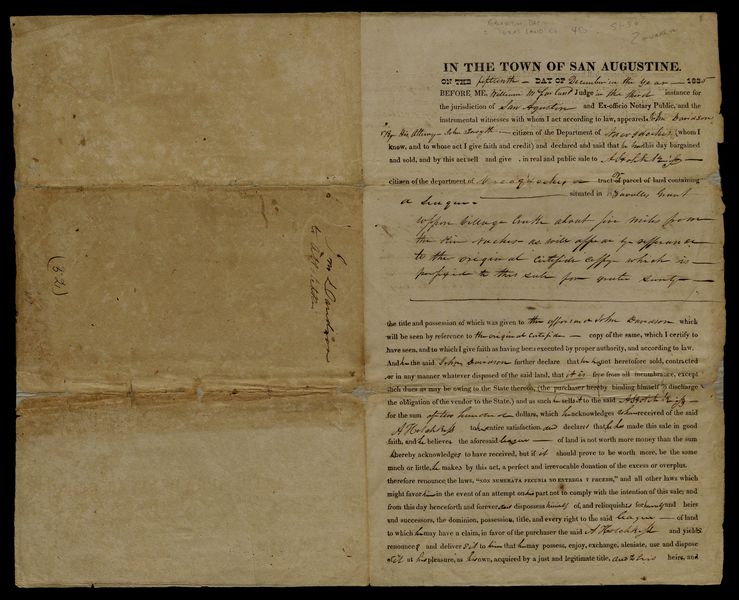 IN THE TOWN OF SAN AUGUSTINE.
ON THE fifteenth — DAY OF December in the year — 1835
BEFORE ME, William McFarland Judge in the third instance for
the jurisdiction of San Agustin and Ex-officio Notary Public, and the
instrumental witnesses with whom I act according to law, appeared John Davidson
By His Attorney John Forsyth — citizen of the Department of Nacogdoches, (whom I
know, and to whose act I give faith and credit) and declared and said that he has this day bargained
and sold, and by this act sell and give , in real and public sale to A Hotchkiss —
citizen of the department of Nacogdoches a tract or parcel of land containing
situated in Zavallas Grant
a league.
uppon Village Creek about five miles from
the River Naches as will appear by refferance
to the original Certifide Coppy which is
prefixed to this sale for
the title and possession of which was given to the John Davidson which
will be seen by reference to the original certifide — copy of the same, which I certify to
have seen, and to which I give faith as having been executed by proper authority, and according to law.
And he the said John Davidson further declare that he has not heretofore sold, contracted
or in any manner whatever disposed of the said land, that it is free from all incumbrance, except
such dues as may be owing to the State thereon, (the purchaser hereby binding himself to discharge
the obligation of the vendor to the State,) and as such he sells it to the said A Hotchkiss —
for the sum of two hundred dollars, which he acknowledges to have received of the said
A Hotchkiss to his entire satisfaction and declares that he has made this sale in good
faith, and he believes the aforesaid league — of land is not worth more money than the sum
hereby acknowledges to have received, but if it should prove to be worth more, be the same
much or little, he makes by this act, a perfect and irrevocable donation of the excess or overplus,
therefore renounce the laws, "NON NUMERATA PECUNIA NO ENTREGA Y PRUEBE," and all other laws which
might favor him in the event of an attempt on his part not to comply with the intention of this sale; and
from this day henceforth and forever, dispossess himself of, and relinquishes for himself and heirs
and successors, the dominion, possession, title, and every right to the said league — of land
to which he may have a claim, in favor of the purchaser the said A Hotchkiss and yields
renounces and deliver s it to him that he may possess, enjoy, exchange, aleniate, use and dispose
of it at his pleasure, as his own, acquired by a just and legitimate title, and to his heirs, and
Jno Davidson
to A Hotchkiss
(52)